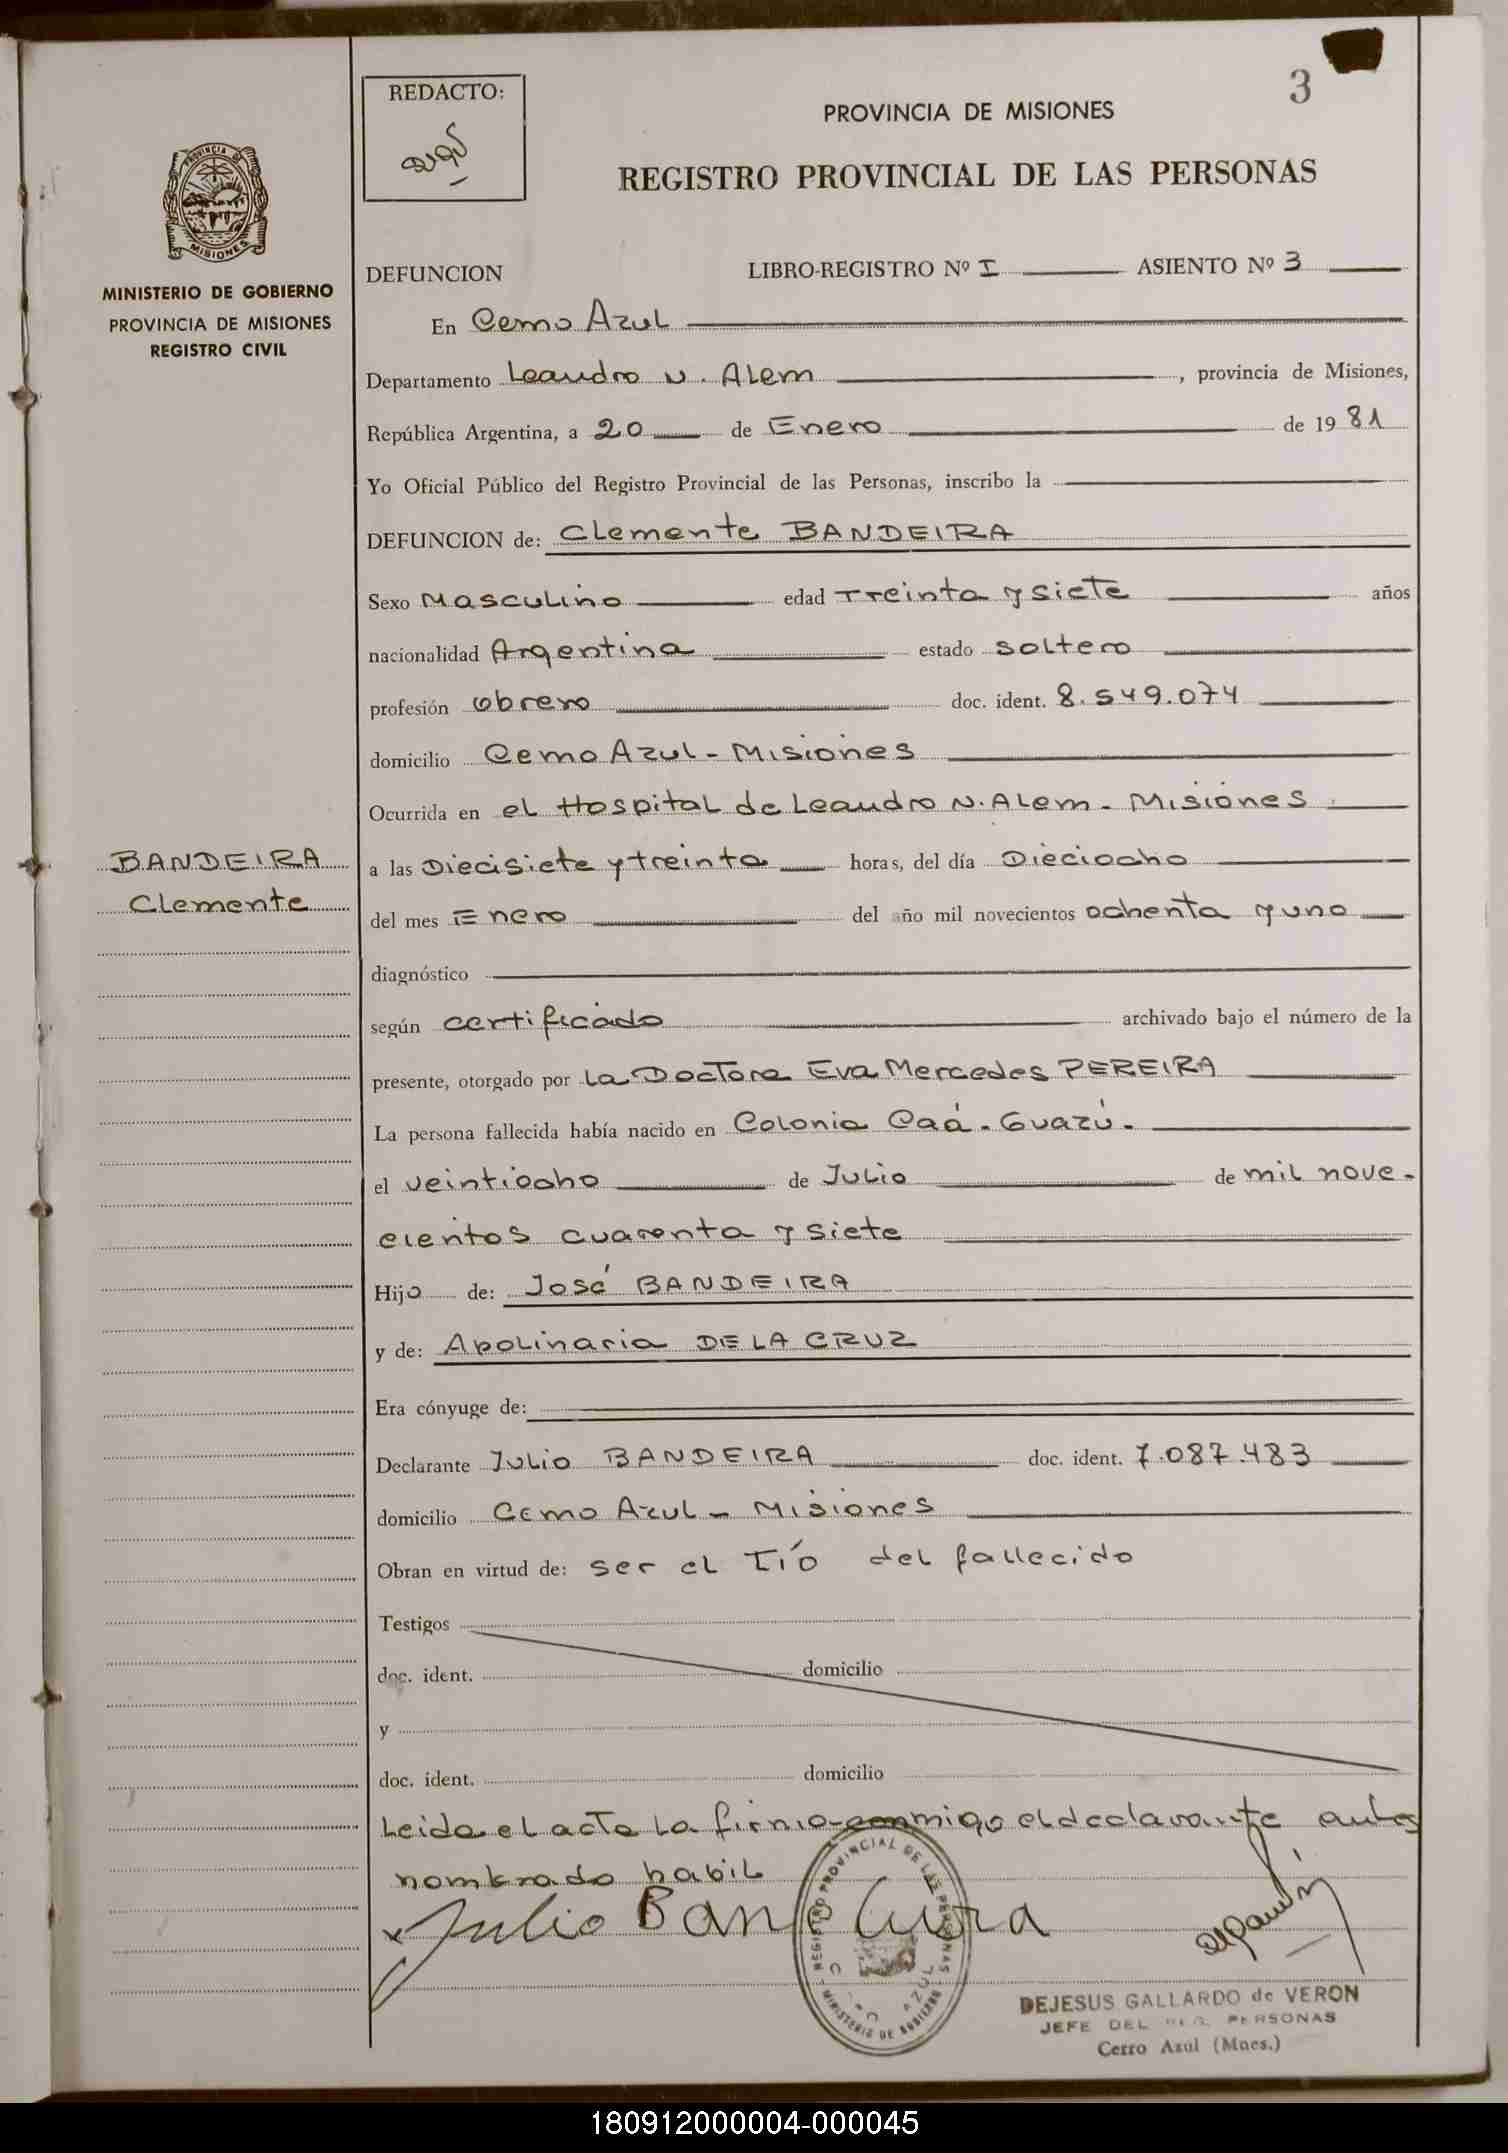 REDACTO:
3
PROVINCIA DE MISIONES
REGISTRO PROVINCIAL DE LAS PERSONAS
PROVINCIA DE
MISIONES
MINISTERIO DE GOBIERNO
PROVINCIA DE MISIONES
REGISTRO CIVIL
DEFUNCION LIBRO-REGISTRO Nº I ASIENTO Nº 3
En Cerro Azul
Departamento Leandro N. Alem, provincia de Misiones,
República Argentina, a 20 de Enero de 1981
Yo Oficial Público del Registro Provincial de las Personas, inscribo la
DEFUNCION de: Clemente BANDEIRA
Sexo Masculino edad Treinta y siete años
nacionalidad Argentina estado soltero
profesión obrero doc. ident. 8.549.074
domicilio Cerro Azul - Misiones
Ocurrida en el Hospital de Leandro N. Alem - Misiones
BANDEIRA
Clemente
a las Diecisiete y treinta horas, del día Dieciocho
del mes Enero del año mil novecientos ochenta y uno
diagnóstico
según certificado archivado bajo el número de la
presente, otorgado por la Doctora Eva Mercedes PEREIRA
La persona fallecida había nacido en Colonia Caá-Guazú.
el veintiocho de Julio de mil nove-
cientos cuarenta y siete
Hijo de: José BANDEIRA
y de: Apolinaria DE LA CRUZ
Era cónyuge de:
Declarante Julio BANDEIRA doc. ident. 7.087.483
domicilio Cerro Azul - Misiones
Obran en virtud de: ser el Tío del fallecido
Testigos
doc. ident. domicilio
y
doc. ident. domicilio
Leida el acta la firma conmigo el declarante antes
nombrado habil
Julio Bandeira
REGISTRO PROVINCIAL DE LAS PERSONAS
MINISTERIO DE GOBIERNO
AZUL
DEJESUS GALLARDO de VERON
JEFE DEL REG. PERSONAS
Cerro Azul (Mnes.)
180912000004-000045